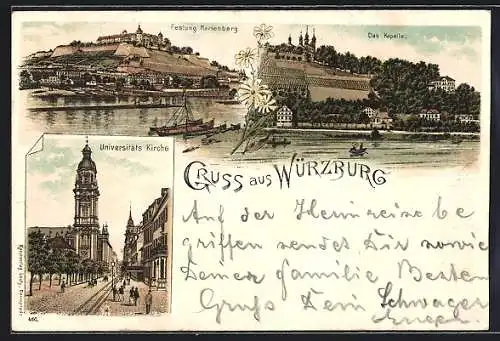 Festung Marienberg
Das Käpelle.
Universitäts Kirche
GRUSS AUS WÜRZBURG
Auf der Heimreise be
griffen sendet Dir sowie
Deiner Familie Besten
Gruß Dein Schwager